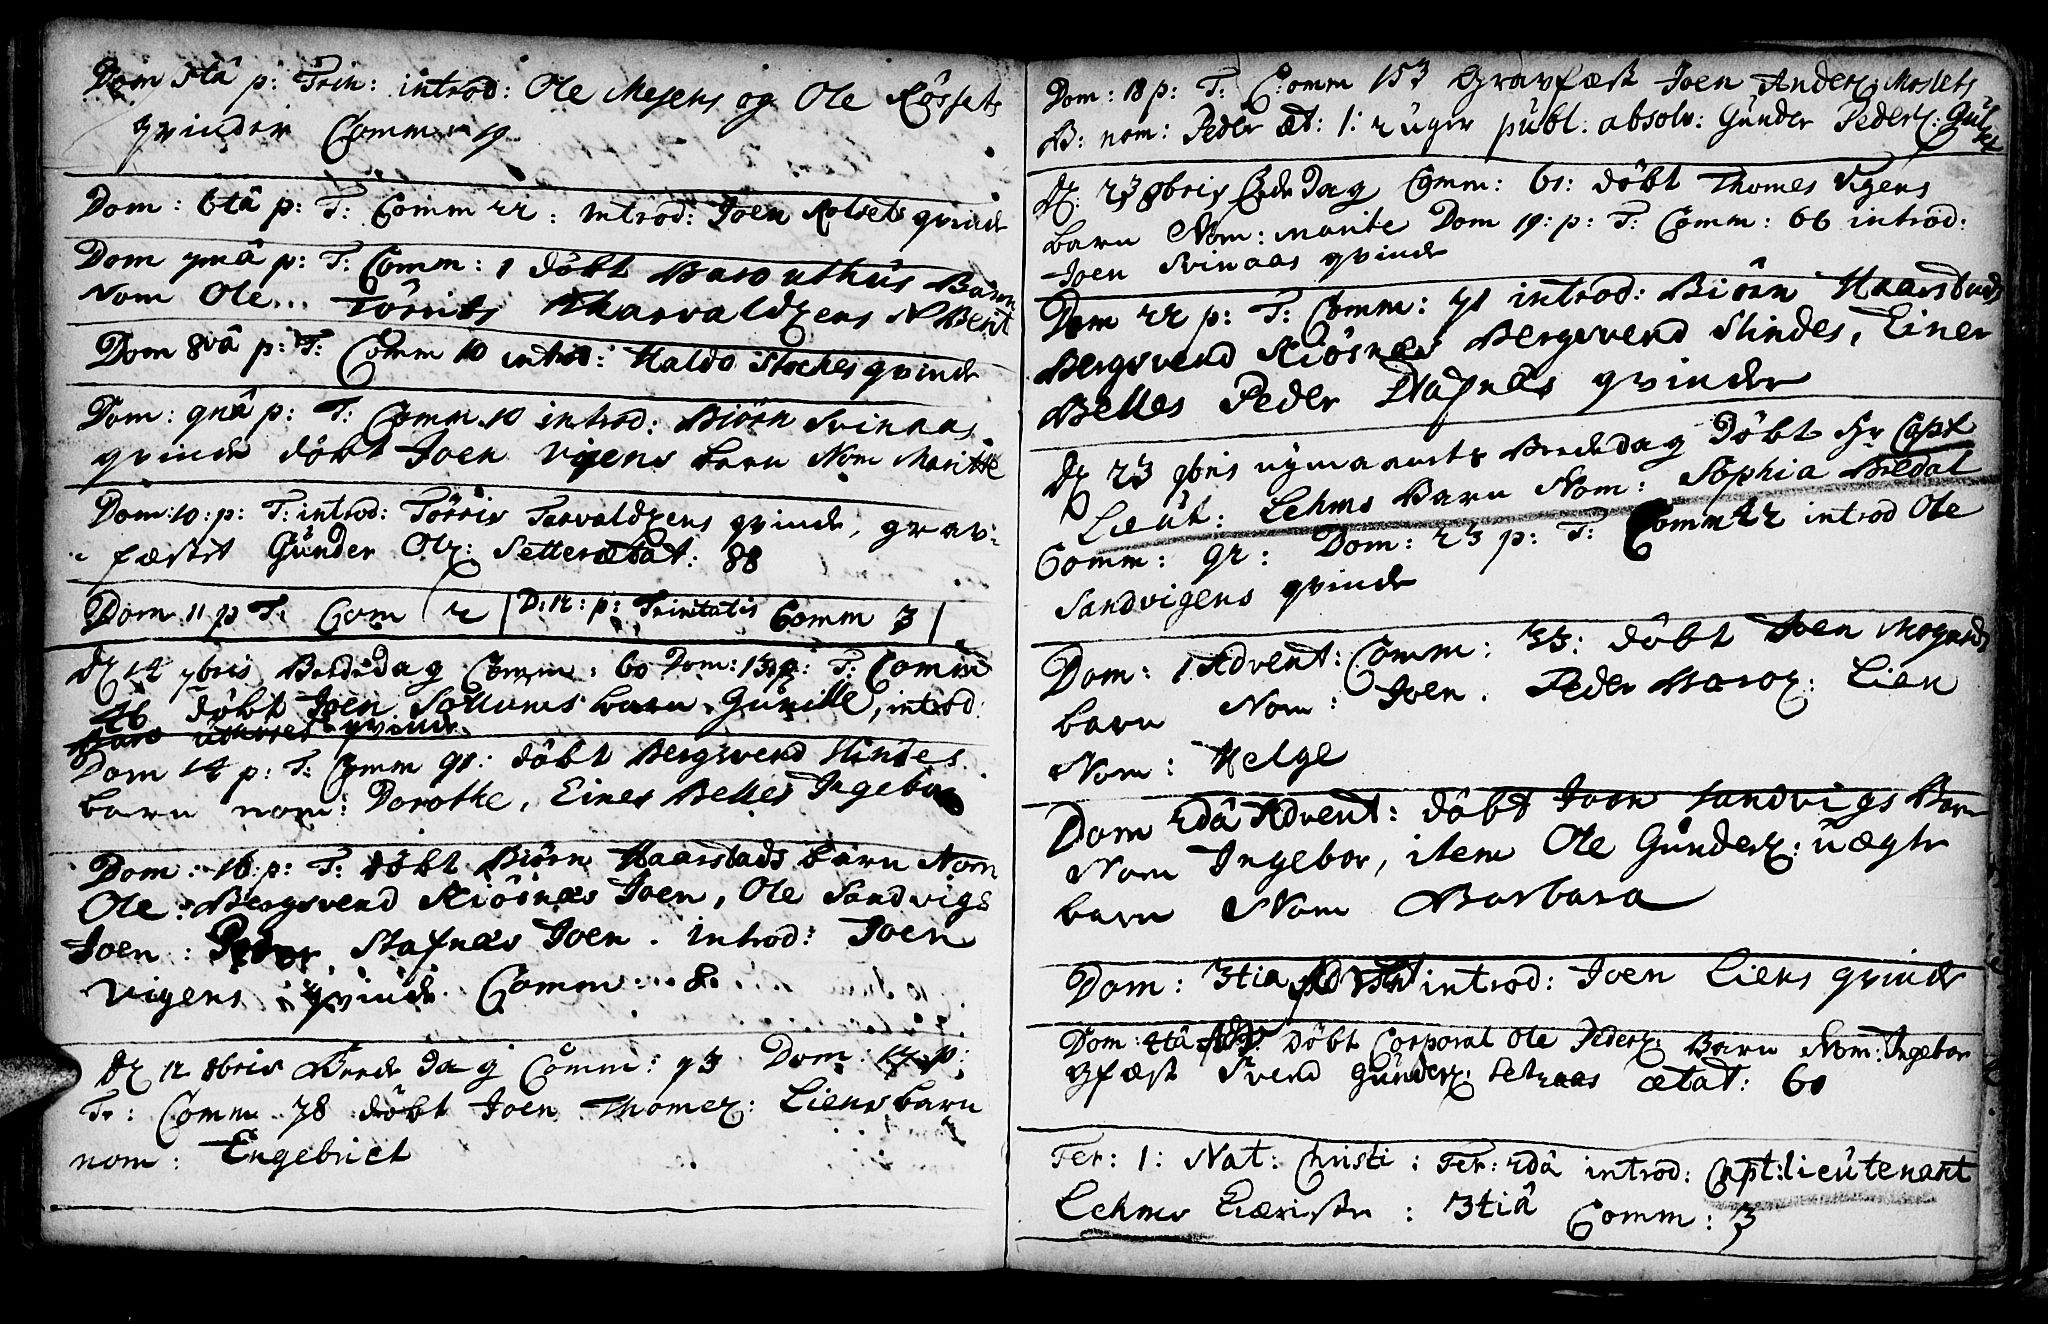 Dom 5tâ p: Trin: introd: Ole Mejens og Ole Røssets
qvinder Comm 19
Dom: 6tâ p: T: Comm 22: introd: Joen Rolsets qvinde
Dom 7mâ p: T: Comm: 1 døbt Baro uthus Barn
Nom Ole... Tørris Tharvaldzens N Bent
Dom 8vâ p: T: Comm 10 introd: Haldo Stockes qvinde
Dom: 9nâ p: T: Comm 10 introd: Biørn Svinaas
qvinde døbt Joen Vigens barn Nom Maritte
Dom: 10: p: T: introd: Tørris Tarvaldzens qvinde, grav-
fæstet Gunder Olz: Setter ætat: 88
Dom 11 p T: Com 2 | D: 12: p: Trinitatis Comm 3 |
Dz 14 7bris Bededag Comm: 60 Dom: 13 p: T: Comm
46 døbt Joen barn Gunille, introd:
Baro qvinde
Dom 14 p: T: Comm 91: døbt Bergsvend Slindes
barn nom: Dorothe, Einer Belles Ingebor
Dom: 16: p: T: døbt Biørn Haarstads barn Nom
Ole: Bergsvend Kiøsnæs Joen, Ole Sandvigs
Joen: Peder Stafnæs Joen. introd: Joen
Vigens qvinde Comm: 8
Dz 12 8bris Beededag Comm: 93 Dom: 17 p:
Tr: Comm 78 døbt Joen Thomez: Liens barn
nom: Engebrict
Dom: 18 p: T: Comm 153 Gravfæst Joen Anderz: Moslets
B: nom: Peder æt: 1: 2 uger publ. absolv: Gunder Pederz:
Dz: 23 8bris Dag Comm: 61: døbt Thomes Vigens
barn Nom: Marite Dom 19: p: T: Comm: 66 introd:
Joen Svinaas qvinde
Dom 22 p: T: Comm: 71 introd: Biørn Haarstads
Bergsvend Kiøsnæs Bergsvend Slindes, Einer
Belles Peder Stafnæs qvinder
Dz 23 9bris Bededag Døbt Hr Capt
Lieut: Lehms Barn Nom: Sophia Bildal
Comm: 92: Dom: 23 p: T: Comm 42 introd Ole
Sandvigens qvinde
Dom: 1 Advent: Comm: 33: døbt Joen Mogards
barn Nom: Joen. Peder Baroz: Lien
Nom: Helge
Dom 2dâ Advent: døbt Joen Sandvigs Barn
Nom Ingebor, item Ole Gunderz: uægte
barn Nom Barbara
Dom: 3tia Advent introd: Joen Liens qvinde
Dom: 4tâ Adv: døbt Corporal Ole Pederz: Barn Nom: Ingebor
Gfæst Svend Gunderz: Selnaas ætat: 60
Fer: 1: Nat: Christi: Fer: 2dâ introd: Capt: lieutenant
Lehms Kæriste: 3tiâ Comm: 3